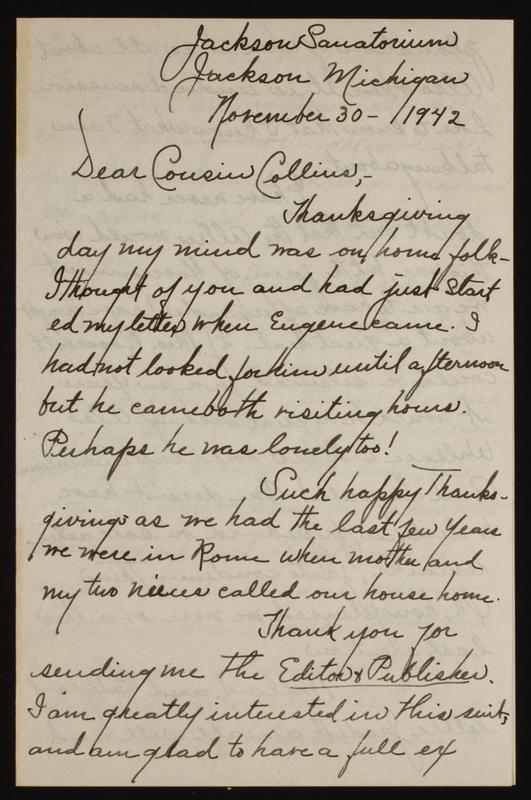 Jackson Sanatorium
Jackson Michigan
November 30 - 1942
Dear Cousin Collins,-
Thanksgiving
day my mind was on home folk-
I thought of you and had just start
ed my letter when Eugene came. I
had not looked for him until afternoon
but he came both visiting hours.
Perhaps he was lonely too!
Such happy Thanks-
givings as we had the last few years
we were in Rome when mother and
my two nieces called our house home.
Thank you for
sending me the Editor & Publisher.
I am greatly interested in this suit,
and am glad to have a full ex